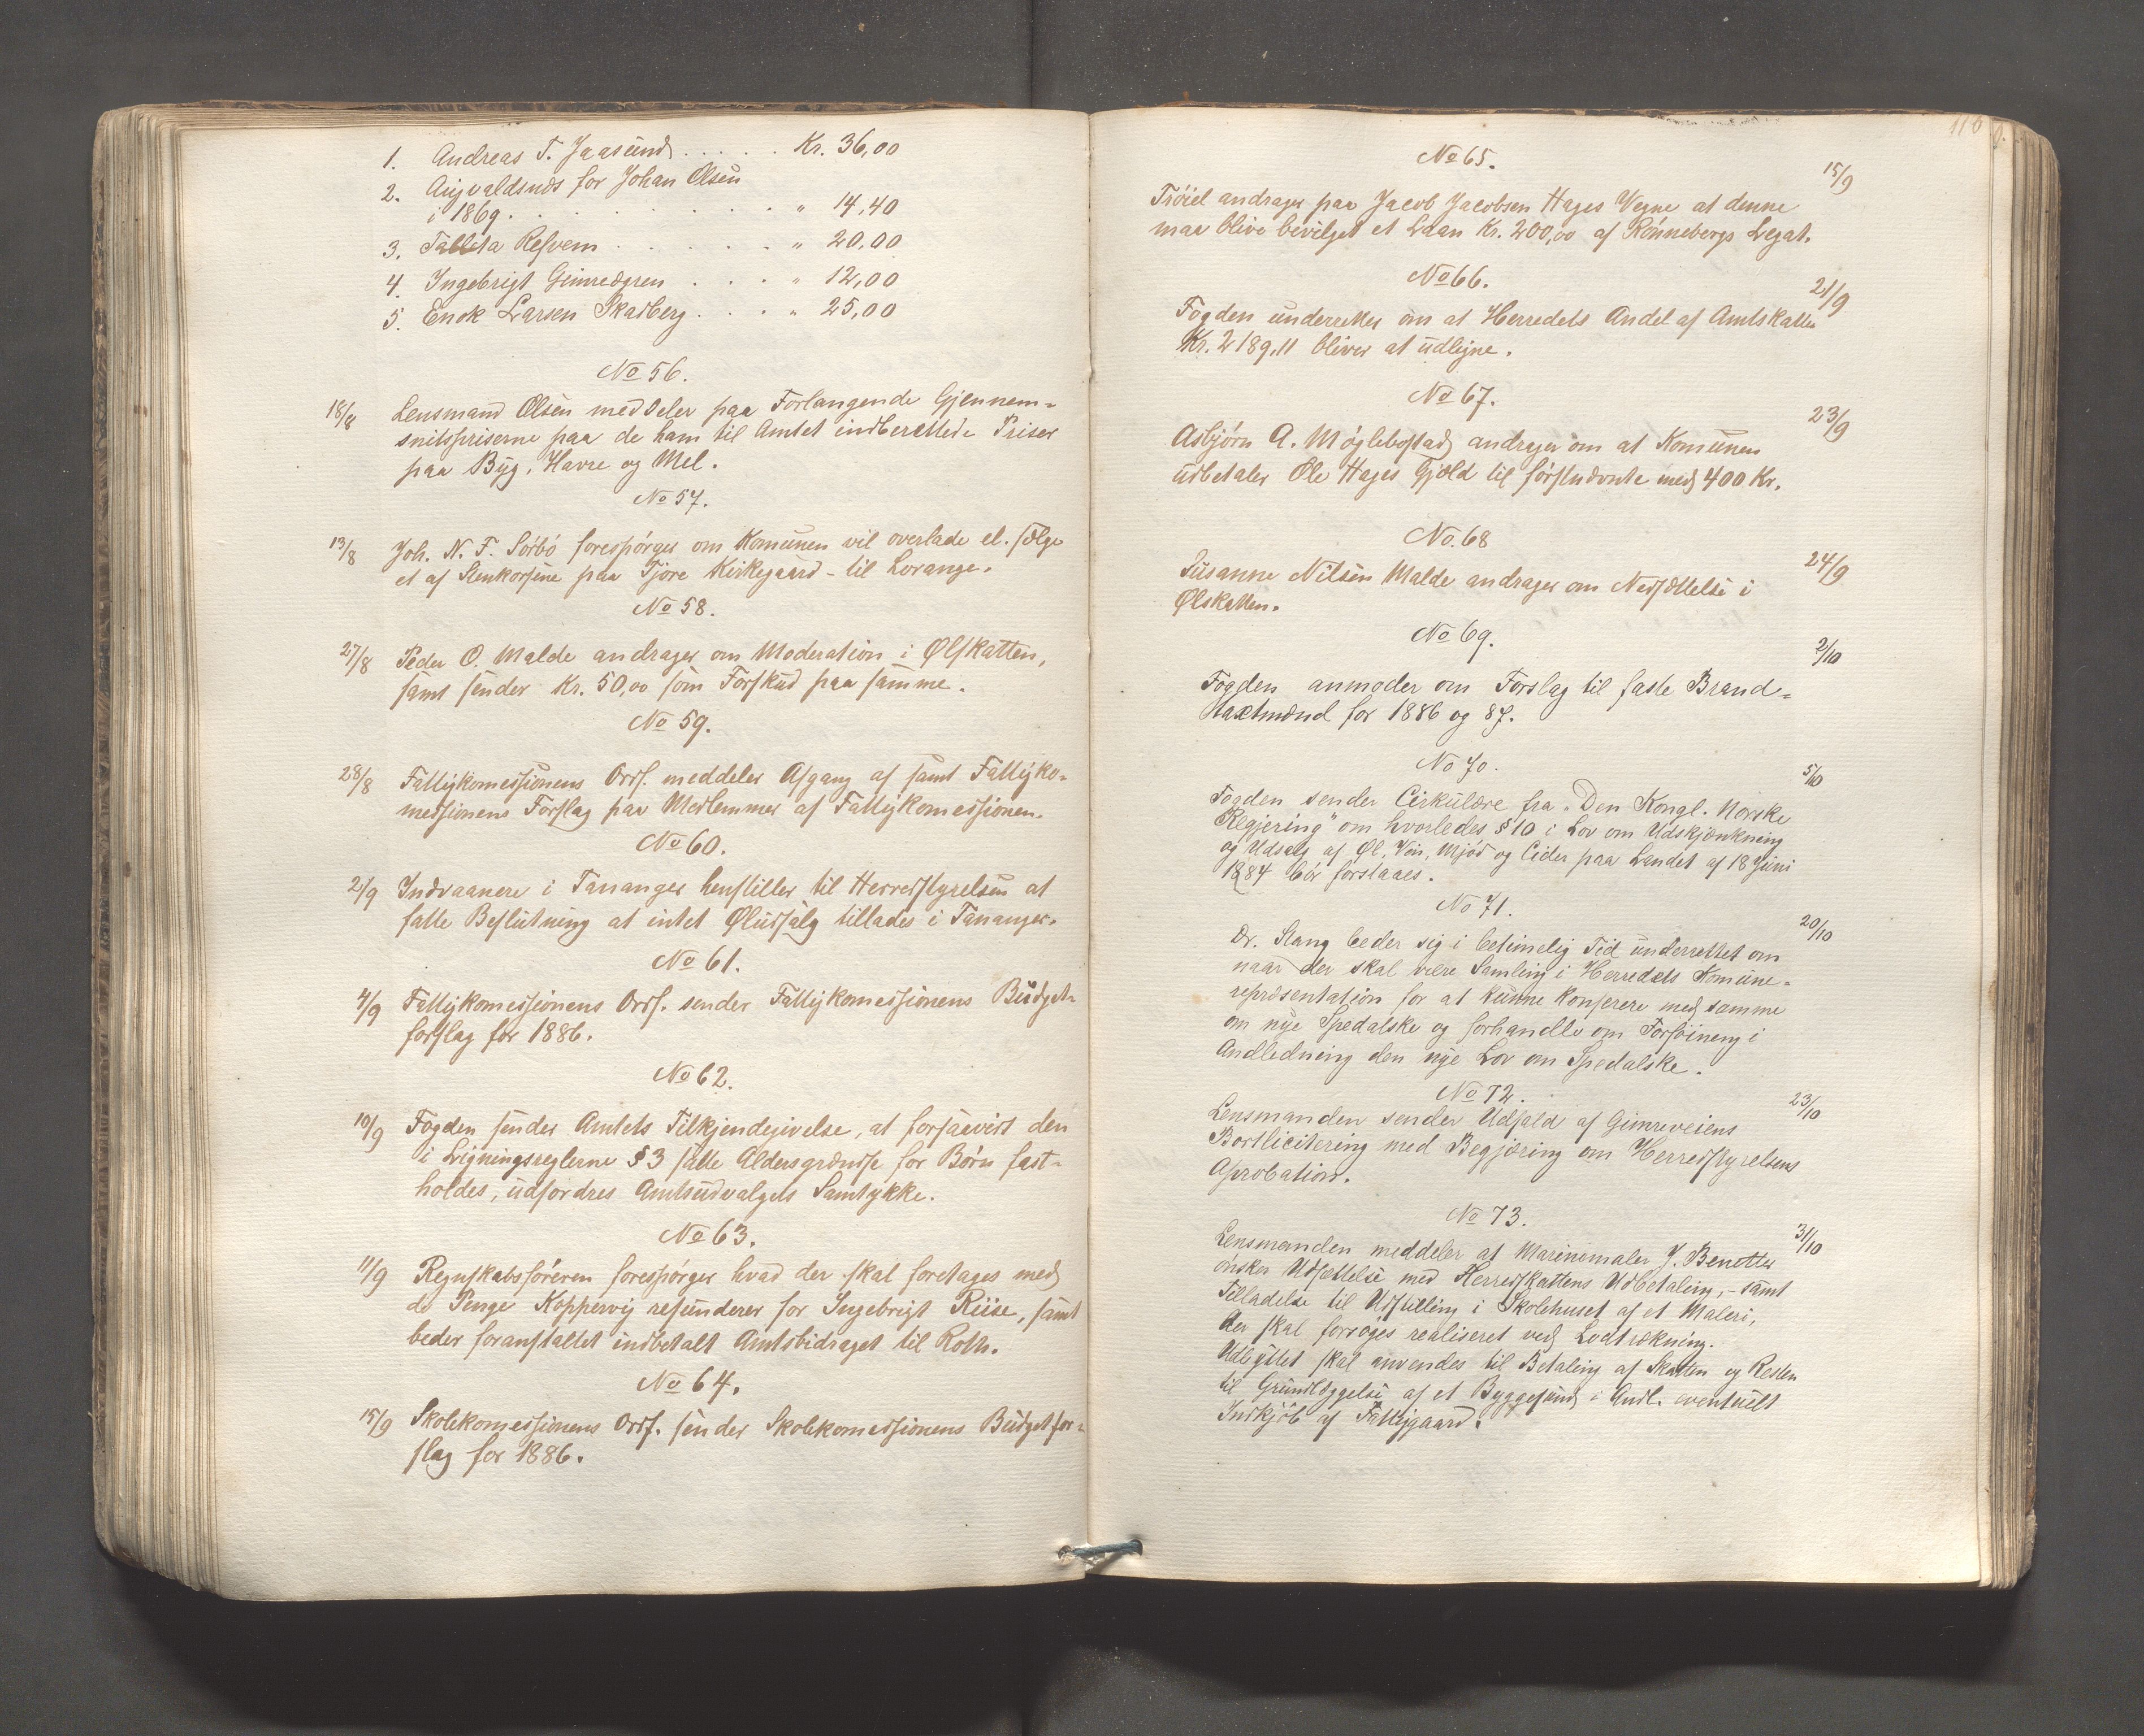 1. Andreas T. Jaasund . . . . . Kr. 36,00
2. Augvaldsnæs for Johan Olsen
i 1869. . . . . . . . . . " 14,40
3. Tallita Refvem . . . . . . " 20,00
4. Ingebrigt Gimre . . . . " 12,00
5. Enok Larsen Skadberg . . . . " 25,00
No 56.
18/8 Lensmand Olsen meddeler paa Forlangende Gjennem-
snitspriserne paa de ham til Amtet indberettede Priser
paa Byg, Havre og Mel.
No 57.
13/8 Joh. N. F. Sörbö forespörger om Komunen vil overlade el. sælge
et af Stenkorsene paa Tjore Kirkegaard - til Lorange.
No 58.
27/8 Peder O. Malde andrager om Moderation i Ølskatten,
samt sender Kr. 50,00 som Forskud paa samme.
No 59.
28/8 Fattigkomessionens Ordf. meddeler Afgang af samt Fattigko-
messionens Forslag paa Medlemmer af Fattigkomessionen.
No 60.
2/9 Indvaanere i Tananger henstiller til Herredstyrelsen at
fatte Beslutning at intet Øludsalg tillades i Tananger.
No 61.
4/9 Fattigkomessionens Ordf. sender Fattigkomessionens Budget-
forslag for 1886.
No 62.
10/9 Fogden sender Amtets Tilkjendegivelse, at forsaavidt den
i Ligningsreglerne § 3 satte Aldersgrændse for Børn fast-
holdes, udfordres Amtsudvalgets Samtykke.
No 63.
11/9 Regnskabsföreren forespörger hvad der skal foretages med
de Penge Koppervig refunderer for Ingebrigt Riise, samt
beder foranstaltet indbetalt Amtsbidraget til Roth.
No 64.
15/9 Skolekomessionens Ordf. sender Skolekomessionens Budgetfor-
slag for 1886.
110
No 65.
15/9
Tröiel andrager paa Jacob Jacobsen Hages Vegne at denne
maa blive bevilget et Laan Kr. 200,00 af Rönnebergs Legat.
No 66.
21/9
Fogden underretter om at Herredets Andel af Amtskatten
Kr. 2189,11 bliver at udligne.
No 67.
23/9
Asbjørn A. Møglebostad andrager om at Komunen
udbetaler Ole Hages Gjæld til førstnævnte med 400 Kr.
No. 68
24/9
Susanne Nilsen Malde andrager om Nedsættelse i
Ølskatten.
No 69.
2/10
Fogden anmoder om Forslag til faste Brand-
taxtmænd for 1886 og 87.
No 70.
5/10
Fogden sender Cirkulære fra "Den Kongl. Norske
Regjering" om hvorledes § 10 i Lov om Udskjænkning
og Udsalg af Øl, Vin, Mjöd og Cider paa Landet af 18 Juni
1884 bör forstaaes.
No 71.
20/10
Dr. Stang beder sig i betimelig Tid underrettet om
naar der skal være Samling i Herredets Komune-
repræsentation for at kunne konferere med samme
om nye Spedalske og forhandle om Forföining i
Andledning den nye Lov om Spedalske.
No 72.
23/10
Lensmanden sender Udfald af Gimreveiens
Bortlicitering med Begjæring om Herredstyrelsens
Aprobation.
No 73.
31/10
Lensmanden meddeler at Marinemaler J. Benetter
önsker Udsættelse med Herredskattens Udbetaling, - samt
Tilladelse til Udstilling i Skolehuset af et Maleri,
der skal forsöges realiseret ved Lodtrækning.
Udbyttet skal anvendes til Betaling af Skatten og Resten
til Grundlæggelse af et Byggefund i Andl. eventuelt
Indkjöb af Fattiggaard.